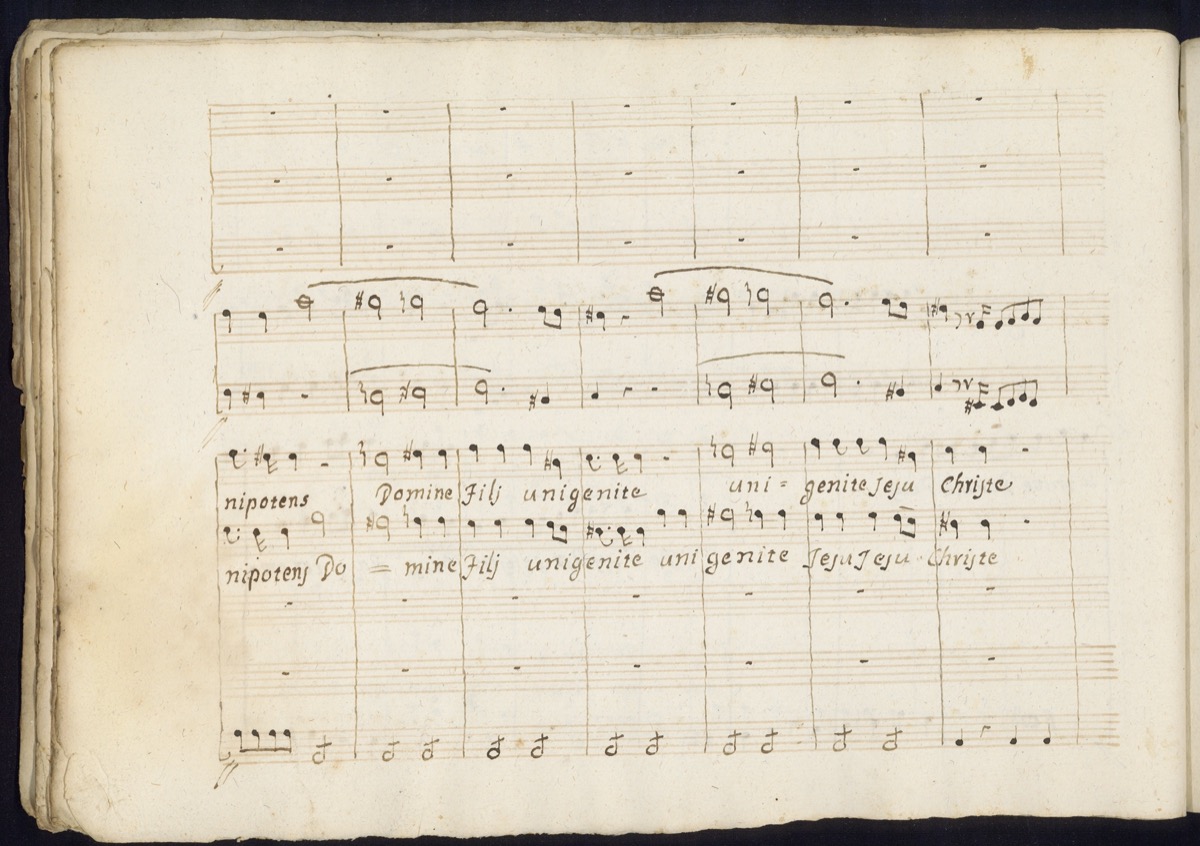 nipotens Domine Filj unigenite uni = genite Jesu Christe
nipotens Do = mine Filj unigenite uni genite Jesu Jesu Christe